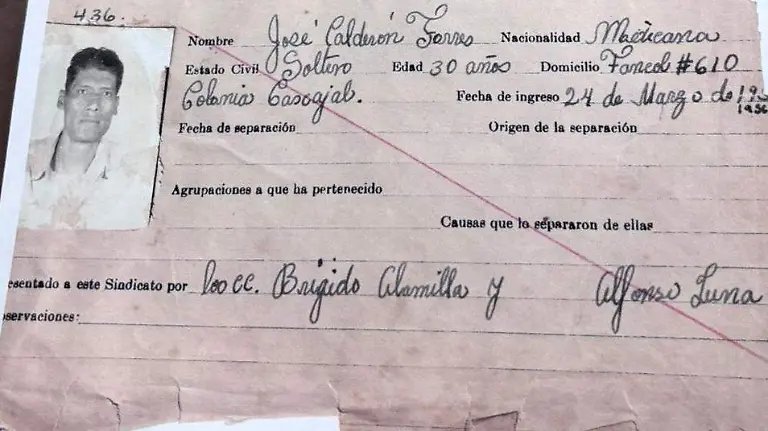 436.
Nombre José Calderón Torres Nacionalidad Mexicana
Estado Civil Soltero Edad 30 años Domicilio #610
Colonia Cascajal. Fecha de ingreso 24 de Marzo de
1956
Fecha de separación Origen de la separación
Agrupaciones a que ha pertenecido
Causas que lo separaron de ellas
esentado a este Sindicato por los CC. Brigido Alamilla y Alfonso Luna
servaciones: